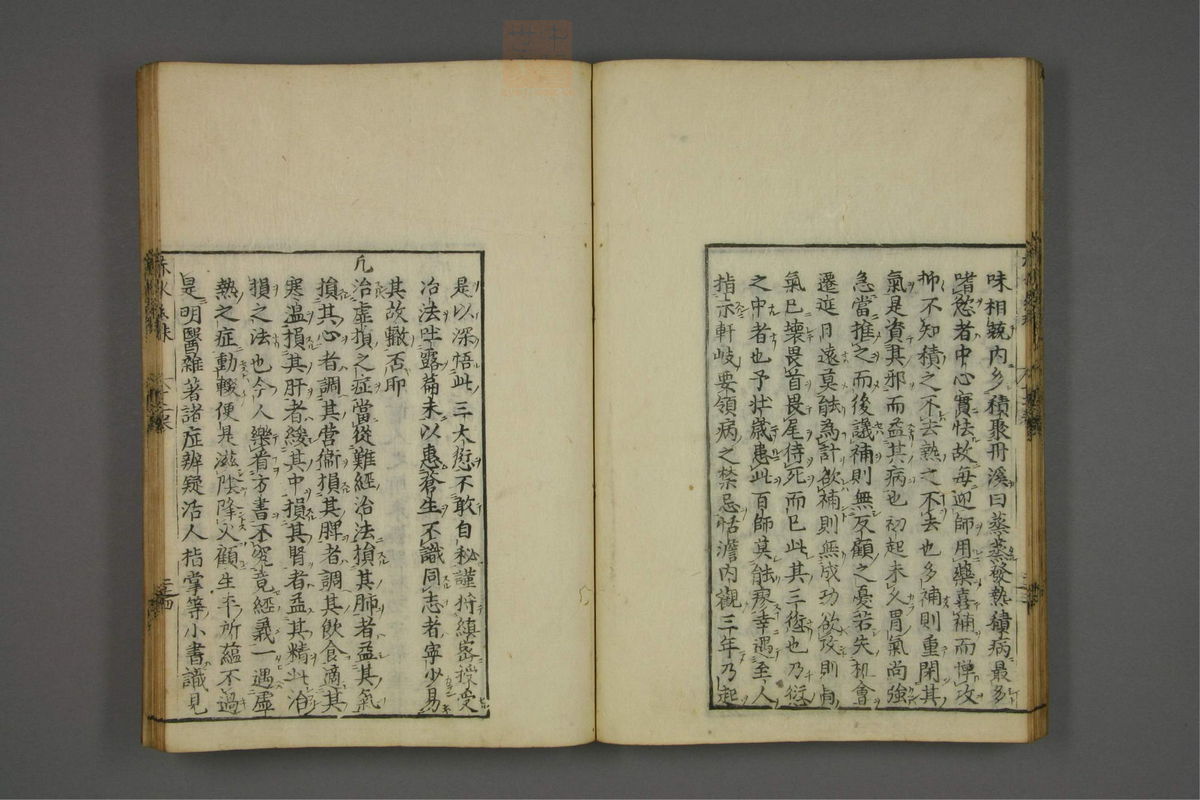 味相競内多積聚丹溪曰蒸蒸發熱積病最多
嗜慾者中心實怯故每迎師用藥喜補而憚攻
不知積之不去熱之不去也多補則重閉其
氣是資其邪而益其病也初起未久胃氣尚強
急當推之而後議補則無反顧之憂若失機會
遷延日遠莫能為計欲補則無成功欲攻則
氣已壞畏首畏尾待死而已此其三術也乃
之中者也予壮歳患此百師莫能療幸遇至人
指示軒岐要領病之禁忌恬澹内觀三年乃起
是以深悟此三大愆不敢自秘謹將縝密授受
治法吐露篇末以惠蒼生不識同志者寧少易
其故轍否耶
凢治虚損之症當從難經治法損其肺者益其氣
損其心者調其営衛損其脾者調其飲食適其
寒温損其肝者緩其中損其腎者益其精此治
損之法也今人樂着方書不究竟經義一遇虚
熱之症動輙便是滋陰降火顧生平所蘊不過
是明醫雜著諸症辨疑活人指掌等小書識見